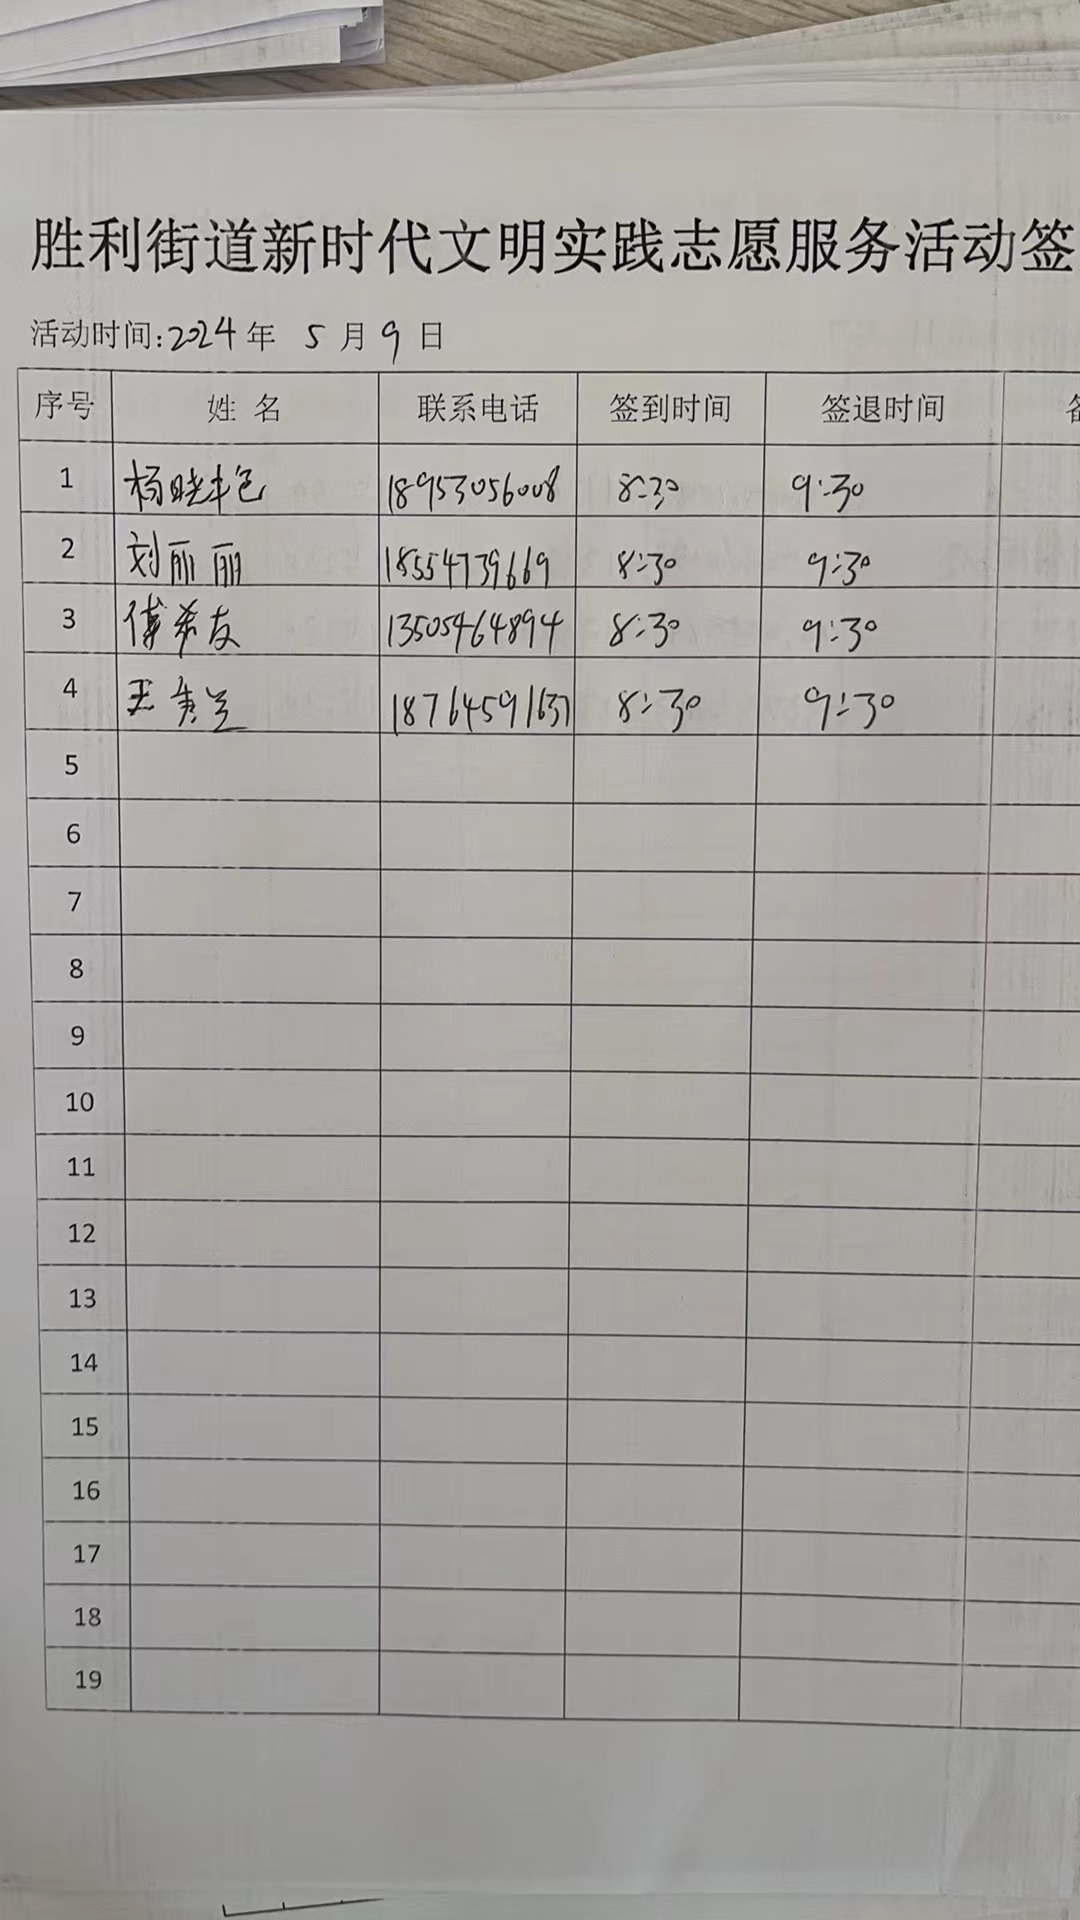 胜利街道新时代文明实践志愿服务活动签
活动时间:2024年 5月9日
序号 姓名 联系电话 签到时间 签退时间
1 杨晓艳 18953056008 8:30 9:30
2 刘丽丽 18554739669 8:30 9:30
3 傅希友 13505464894 8:30 9:30
4 王秀兰 18764591637 8:30 9:30
5
6
7
8
9
10
11
12
13
14
15
16
17
18
19